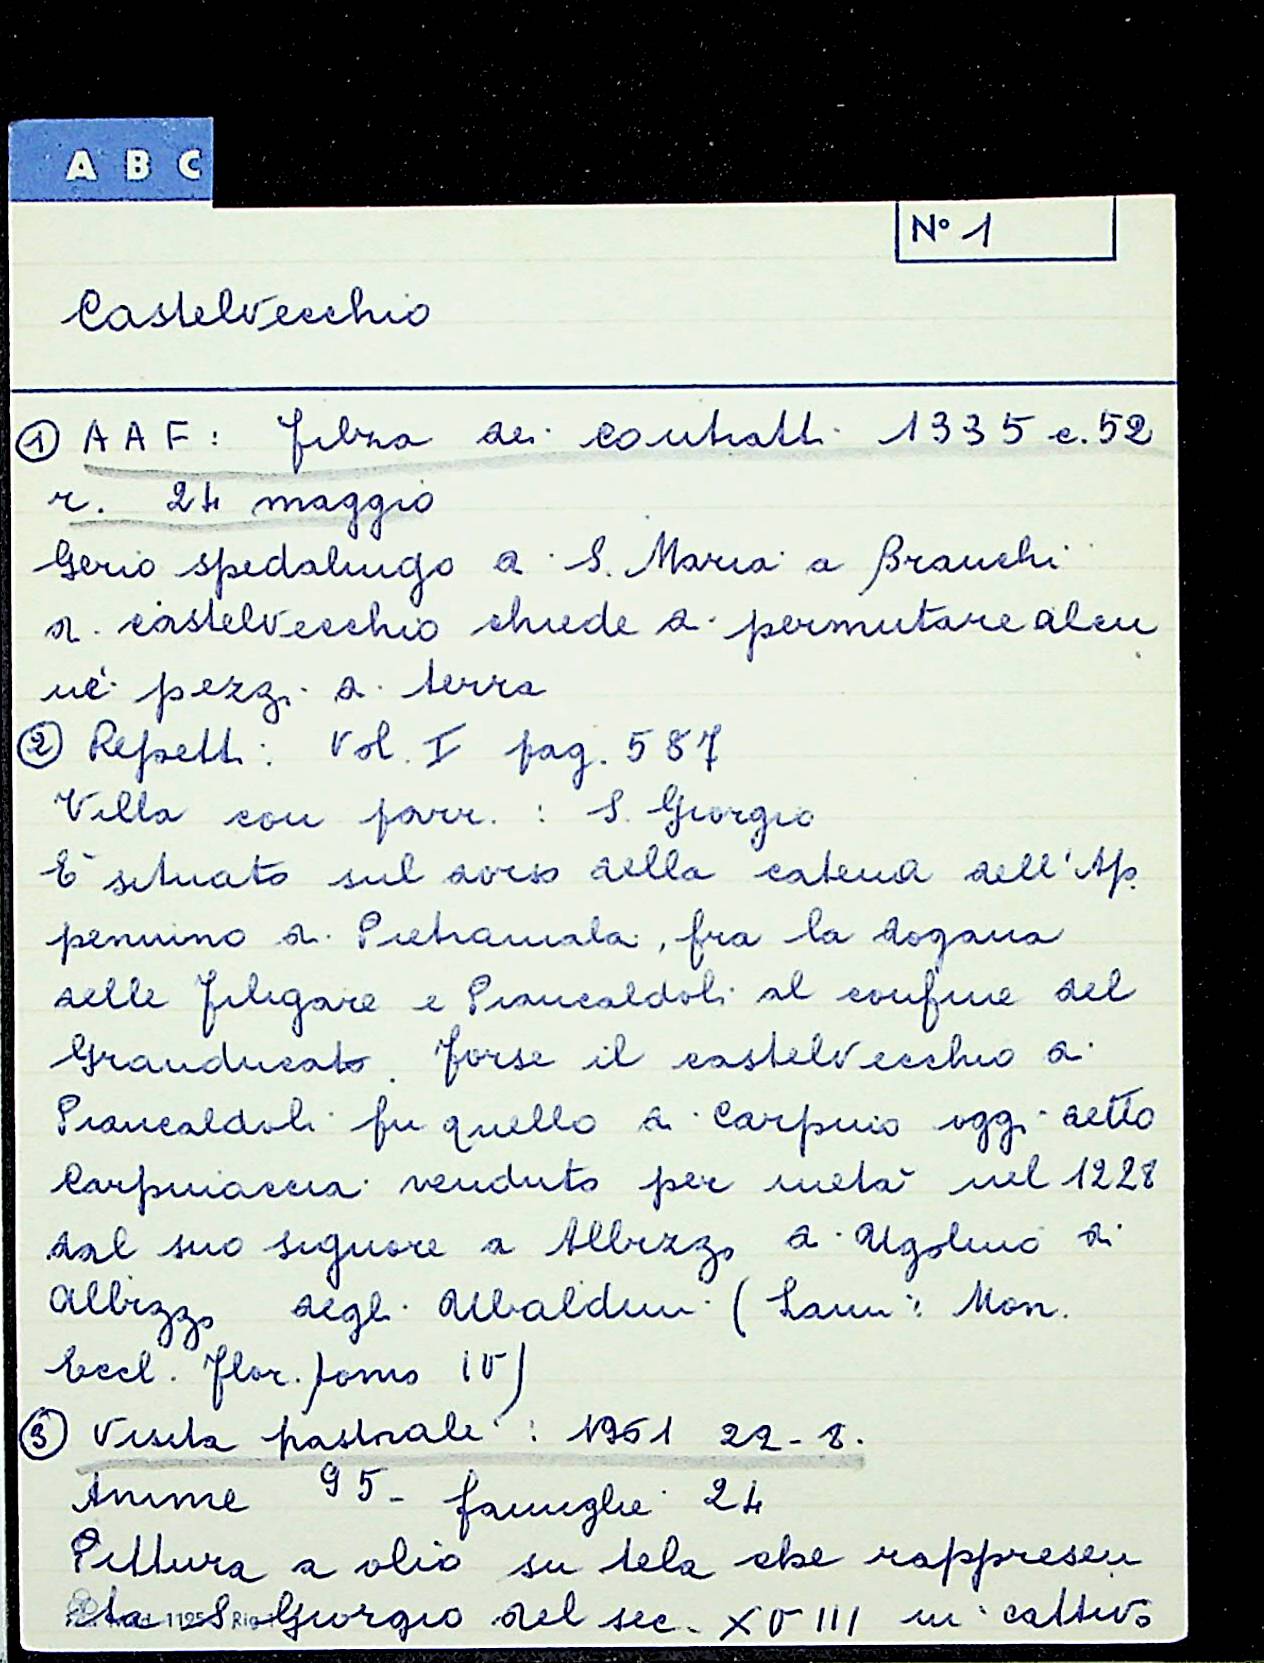 A B C
N° 1
Castelvecchio
① A A F : filza dei contratti 1335 c. 52
r. 24 maggio
Gerio spedalingo di S. Maria a Bruschi
di castelvecchio chiede di permutare alcu
ne pezzi di terra
② Repetti : Vol. I pag. 587
Villa con parr. : S. Giorgio
E' situato sul dorso della catena dell'Ap
pennino di Pietramala, fra la dogana
delle Filigare e Piancaldoli al confine del
Granducato. Forse il castelvecchio di
Piancaldoli fu quello di Carpinio oggi detto
Carpiniaccia venduto per metà nel 1228
dal suo signore a Albizzo di Ugolino di
Albizzo degli Ubaldini (Lami : Mon.
Eccl. Flor. tomo IV)
③ Visita pastorale : 1951 22-8.
Anime 95 - famiglie 24
Pittura a olio su tela che rappresen
ta S. Giorgio del sec. XVIII in cattivo